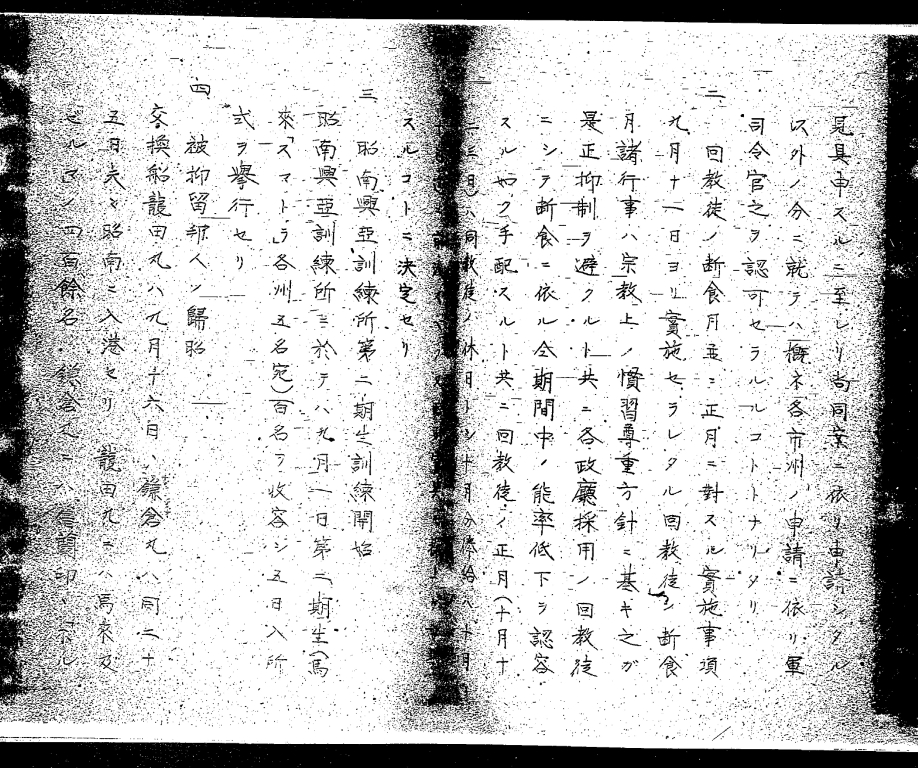 見具申スルニ至レリ尚同案ニ依リ申請シタル
以外ノ分ニ就テハ概ネ各市州ノ申請ニ依リ軍
司令官之ヲ認可セラルルコトトナリタリ
二 回教徒ノ断食月並ニ正月ニ對スル實施事項
九月十一日ヨリ實施セラレタル回教徒ノ断食
月諸行事ハ宗教上ノ慣習尊重方針ニ基キ之ガ
是正抑制ヲ避クルト共ニ各政廳採用ノ回教徒
ニシテ断食ニ依ル仝期間中ノ能率低下ヲ認容
スル如ク手配スルト共ニ回教徒ノ正月(十月十
二三日)ハ同教徒ノ休日トシ十月分俸給ハ十月
スルコトニ決定セリ
三 昭南興亞訓練所第二期生訓練開始
昭南興亞訓練所ニ於テハ九月一日第二期生(馬
來「スマトラ」各州五名宛)百名ヲ收容シ五日入所
式ヲ擧行セリ
四 被抑留邦人ノ歸昭
交換船龍田丸ハ九月十六日、鎌倉丸ハ同二十
五日夫々昭南ニ入港セリ 龍田丸ニハ馬來及
ビルマノ四百餘名、鎌倉丸ニハ舊蘭印、